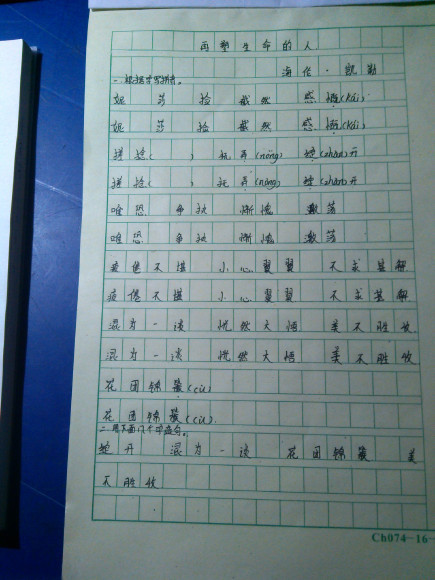 再塑生命的人
海伦·凯勒
一.根据字写拼音。
妮 莎 捡 截然 感慨(kǎi)
妮 莎 捡 截然 感慨(kǎi)
搓捻( ) 玩弄(nòng) 绽(zhàn)开
搓捻( ) 玩弄(nòng) 绽(zhàn)开
唯恐 争执 惭愧 激荡
唯恐 争执 惭愧 激荡
疲倦不堪 小心翼翼 不求甚解
疲倦不堪 小心翼翼 不求甚解
混为一谈 恍然大悟 美不胜收
混为一谈 恍然大悟 美不胜收
花团锦簇(cù)
花团锦簇(cù)
二.用下面几个字造句。
绽开 混为一谈 花团锦簇 美
不胜收
Ch074-16-